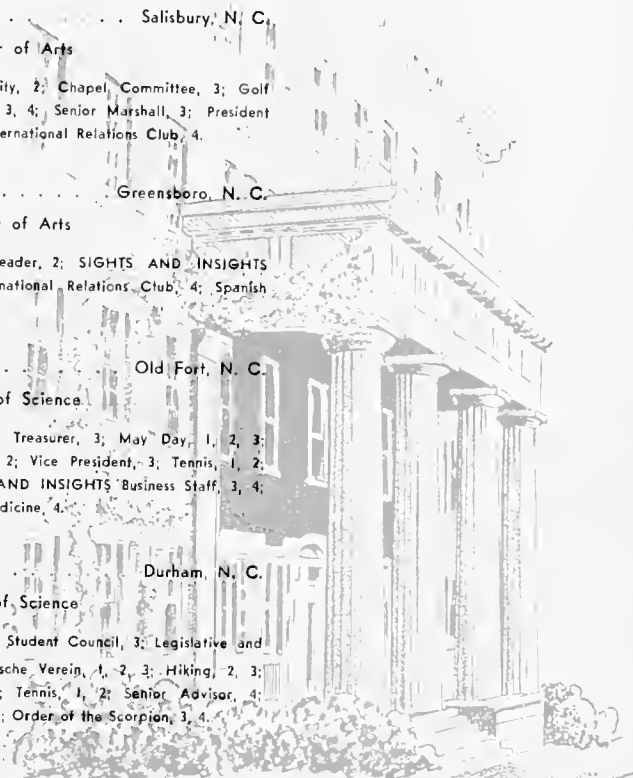 . . . . . . . Salisbury, N. C.
r of Arts
ity, 2; Chapel Committee, 3; Golf
3, 4; Senior Marshall, 3; President
ernational Relations Club, 4.
. . . . . . . Greensboro, N. C.
r of Arts
eader, 2; SIGHTS AND INSIGHTS
national Relations Club, 4; Spanish
. . . . . . . Old Fort, N. C.
of Science
Treasurer, 3; May Day, 1, 2, 3;
2; Vice President, 3; Tennis, 1, 2;
AND INSIGHTS Business Staff, 3, 4;
dicine, 4.
. . . . . . . Durham, N. C.
of Science
Student Council, 3; Legislative and
sche Verein, 1, 2, 3; Hiking, 2, 3;
; Tennis, 1, 2; Senior Advisor, 4;
; Order of the Scorpion, 3, 4.